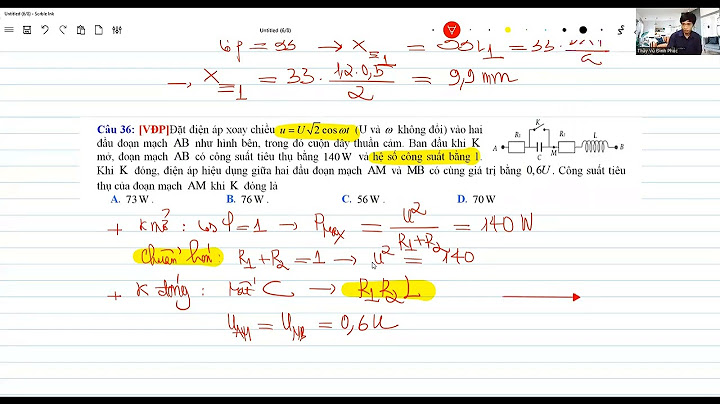 Untitled (6/6) - ScribleInk
Untitled (6/6)
Thầy Vũ Đình Phúc
→ x≡1 = 33 · 12·0,5/2 = 9,9 mm
Câu 36: [VĐP]Đặt điện áp xoay chiều u = U√2 cos ωt (U và ω không đổi) vào hai
đầu đoạn mạch AB như hình bên, trong đó cuộn dây thuần cảm. Ban đầu khi K
mở, đoạn mạch AB có công suất tiêu thụ bằng 140 W và hệ số công suất bằng 1.
Khi K đóng, điện áp hiệu dụng giữa hai đầu đoạn mạch AM và MB có cùng giá trị bằng 0,6U. Công suất tiêu
thụ của đoạn mạch AM khi K đóng là
A. 73 W. B. 76 W. C. 56 W. D. 70 W
A R₁ K C M R₂ L B
+ K mở: cos φ = 1 → Pmax = U²/(R₁+R₂) = 140 W
Chuẩn hóa: R₁ + R₂ = 1 → U² = 140
+ K đóng: mất C → R₁R₂L
U_AM = U_MB = 0,6U